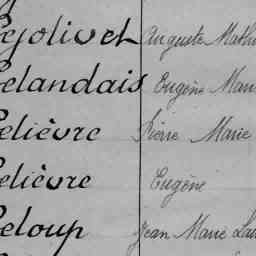 Lejolivet Auguste Math
Lelandais Eugène Mari
Lelièvre Pierre Marie
Lelièvre Eugène
Leloup Jean Marie Lau